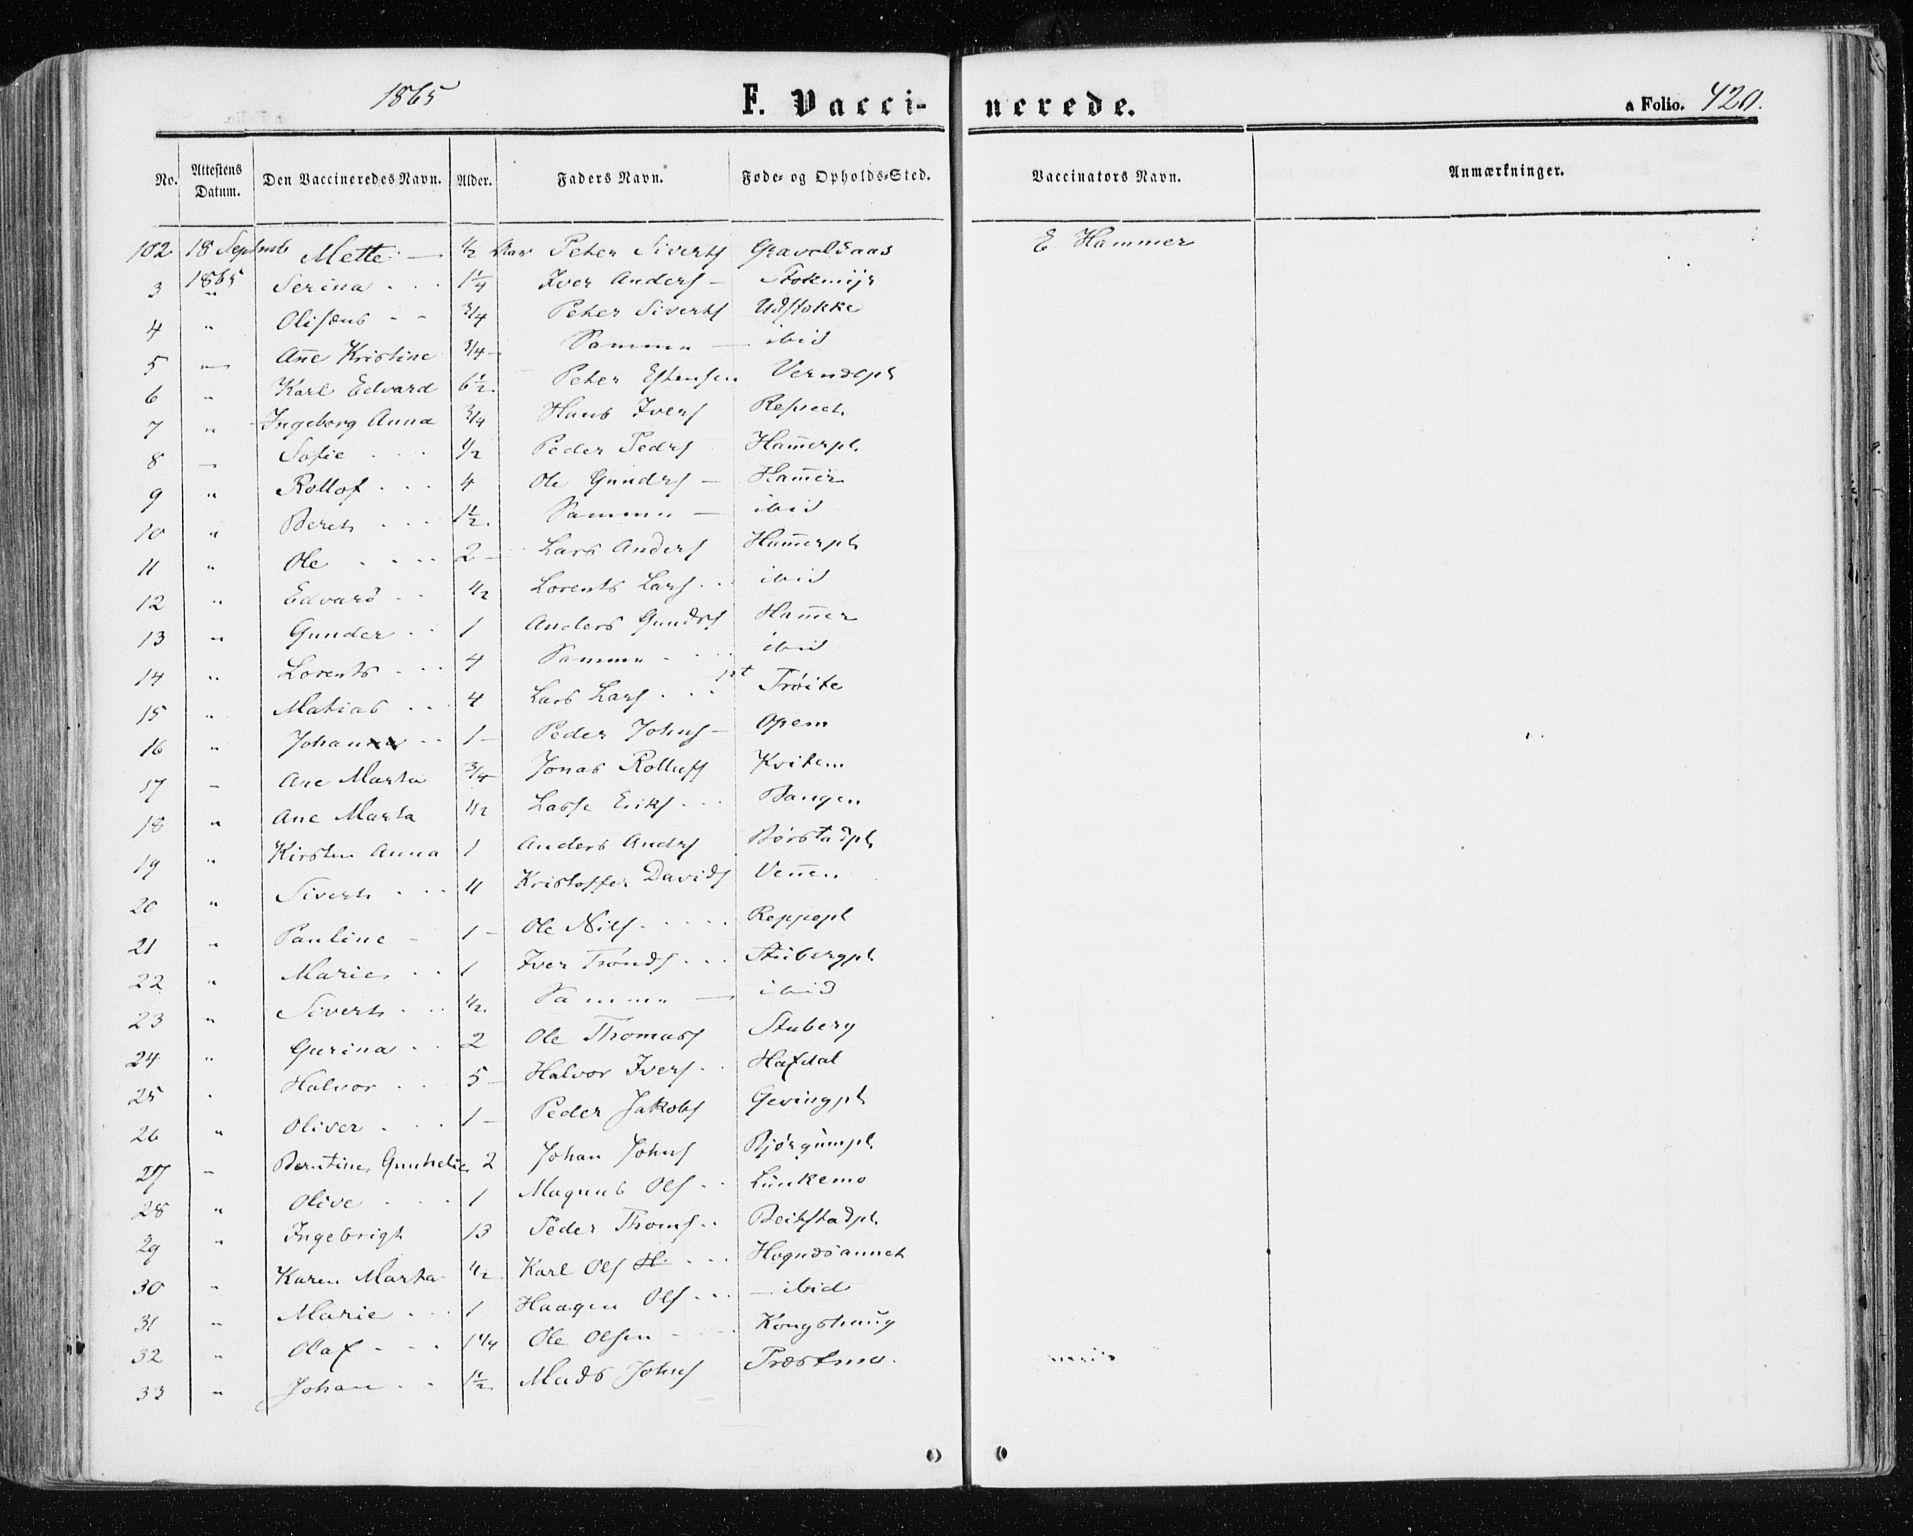 1865 F. Vacci- nerede. a Folio. 420.
No. Attestens Datum. Den Vaccineredes Navn. Alder. Faders Navn. Føde- og Opholds-Sted. Vaccinators Navn. Anmærkninger.
102 18 Septmb Mette — 1/2 Aar Peter Siverts E Hammer
3 1865 " Serina 1 1/4 Iver Anders — Stokmyr
4 " Olisæus 3/4 Peter Siverts Udstokke
5 — Ane Kristine 3/4 — Samme — ibid
6 " Karl Edvard 6 1/2 Peter Estensen
7 " Ingeborg Anna 3/4 Hans Ivers
8 — Sofie 1/2 Peder Peders Hamerpl.
9 " Rollof 4 Ole Gunders — Hamer
10 " Bereth 1 1/2 Samme — ibid
11 " Ole 2 — Lars Anders Hamerpl
12 " Edvard 1/2 Lorents Lars ibid
13 " Gunder 1 Anders Gunds Hamer
14 " Lorents 4 Samme ibid
15 " Matias 4 Lars Lars Trøite
16 " Johan 1 — Peder Johns — Opem
17 — Ane Marta 3/4 Jonas Rollufs Kvitem
18 " Ane Marta 1/2 Lasse Eriks Bangen
19 " Kirsten Anna 1 Anders Andrs Børstadpl
20 " Siverts 11 Kristoffer Davids Venen
21 " Pauline — 1 — Ole Nils Reppepl
22 " Marie 1 Iver Trønds Stubergpl
23 " Siverts 1/2 Samme — ibid
24 " Gurina 2 Ole Thomass Stuberg
25 " Halvor 5 — Halvor Ivers Hafdal
26 " Oliver 1 — Peder Jakobs Gevingpl
27 — Berntine 2 Johan Johns Bjørgumpl
28 " Olive 1 Magnus Ols Lunkemo
29 " Ingebrigt 13 Peder Thoms Beitstadpl
30 " Karen Marta 1/2 Karl Ols
31 " Marie 1 Haagen Ols — ibid
32 " Olaf 1 1/4 Ole Olsen Kongshaug
33 " Johan 1 1/2 Mads Johns Præstmo.